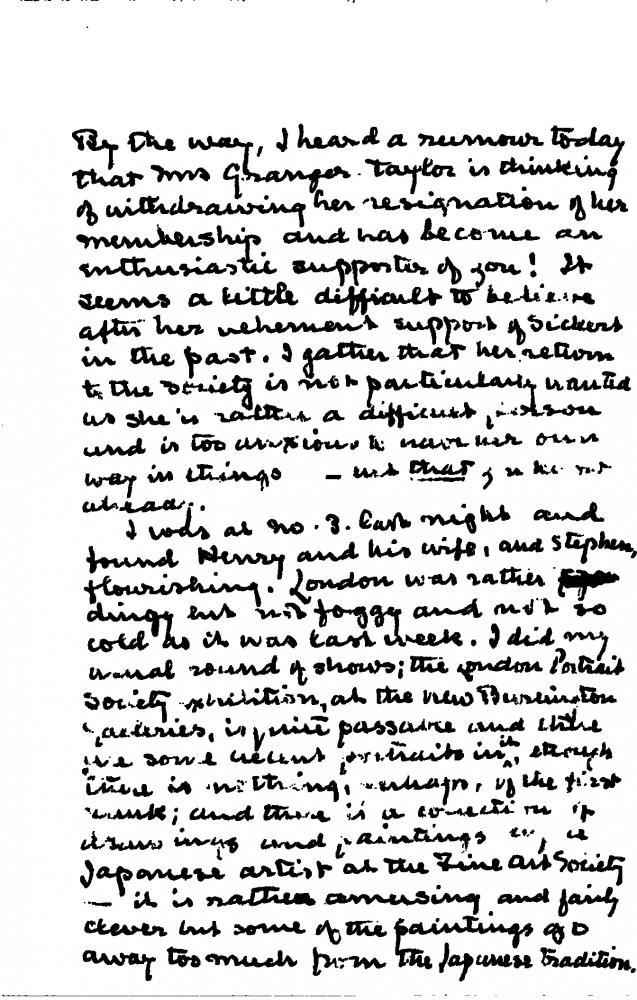 By the way, I heard a rumour today
that Mrs Granger-Taylor is thinking
of withdrawing her resignation of her
membership and has become an
enthusiastic supporter of you! It
seems a little difficult to believe
after her vehement support of Sickert
in the past. I gather that her return
to the Society is not particularly wanted
as she is rather a difficult person
and is too anxious to have her own
way in things — but that
ahead.
I was at No. 3. last night and
found Henry and his wife, and Stephen,
flourishing. London was rather
dingy but not foggy and not so
cold as it was last week. I did my
usual round of shows; the London Portrait
Society exhibition, at the new Burlington
Galleries, is quite passable and there
are some decent portraits in it, though
there is nothing, perhaps, of the first
rank; and there is a collection of
drawings and paintings by a
Japanese artist at the Fine Art Society
— it is rather amusing and fairly
clever but some of the paintings go
away too much from the Japanese tradition.